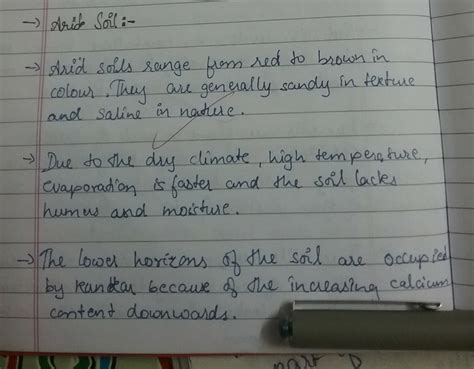 → Arid Soil:-
→ Arid soils range from red to brown in
colour. They are generally sandy in texture
and saline in nature.
→ Due to the dry climate, high temperature,
evaporation is faster and the soil lacks
humus and moisture.
→ The lower horizons of the soil are occupied
by kankar because of the increasing calcium
content downwards.